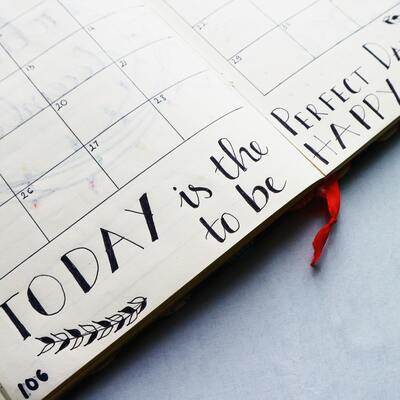 22
23
13
20
21
26
27
28
TODAY is the PERFECT DA
to be HAPPY
106